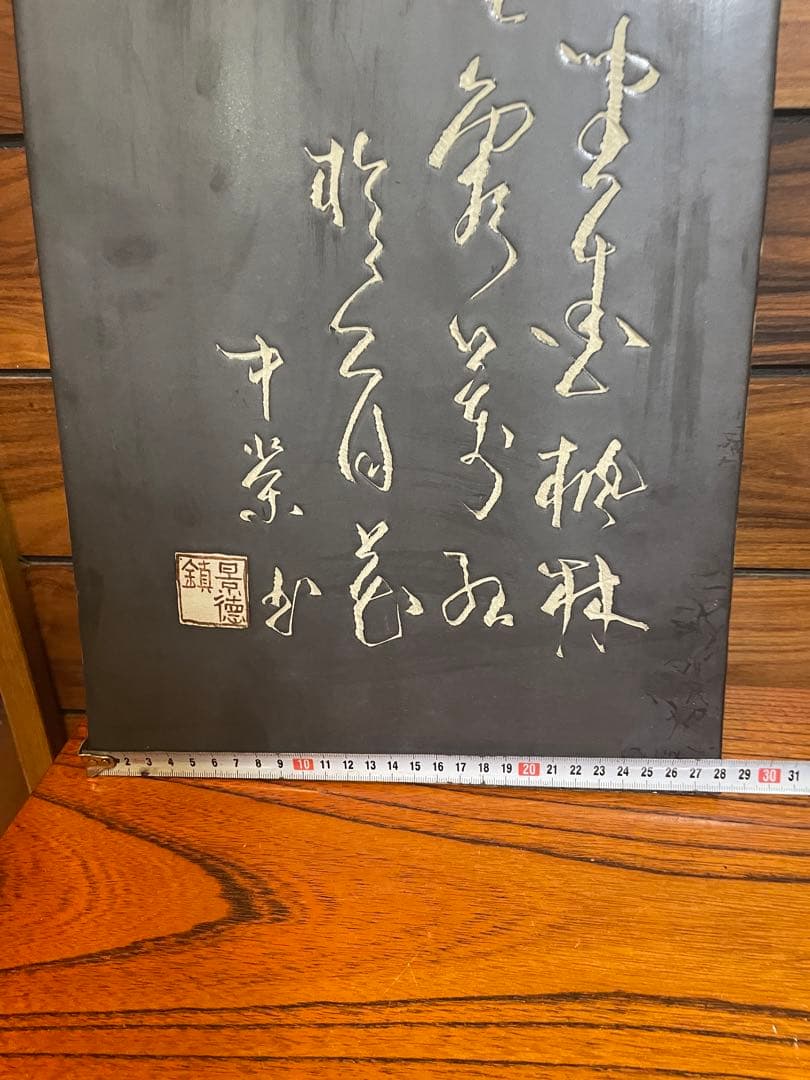 坐愛楓林
霜葉紅
於二月花
中業书
景德鎮
2 3 4 5 6 7 8 9 10 11 12 13 14 15 16 17 18 19 20 21 22 23 24 25 26 27 28 29 30 31